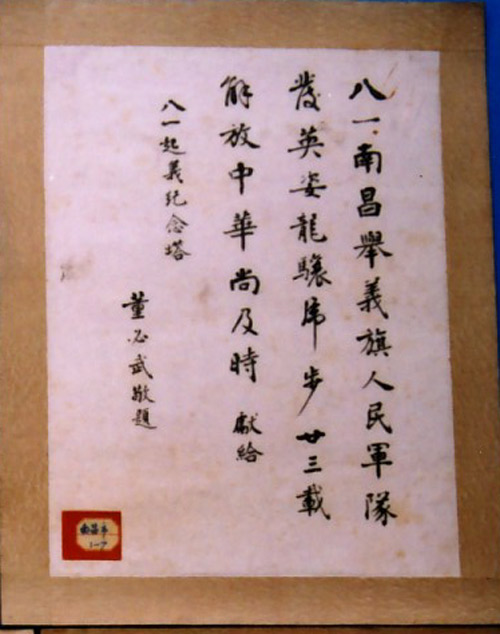 八一南昌舉義旗人民軍隊
發英姿龍驤虎步廿三載
解放中華尚及時 獻給
八一起義紀念塔
董必武敬題
南昌市
1-7